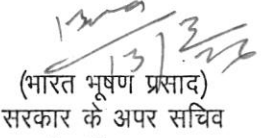 13/3/26
(भारत भूषण प्रसाद)
सरकार के अपर सचिव